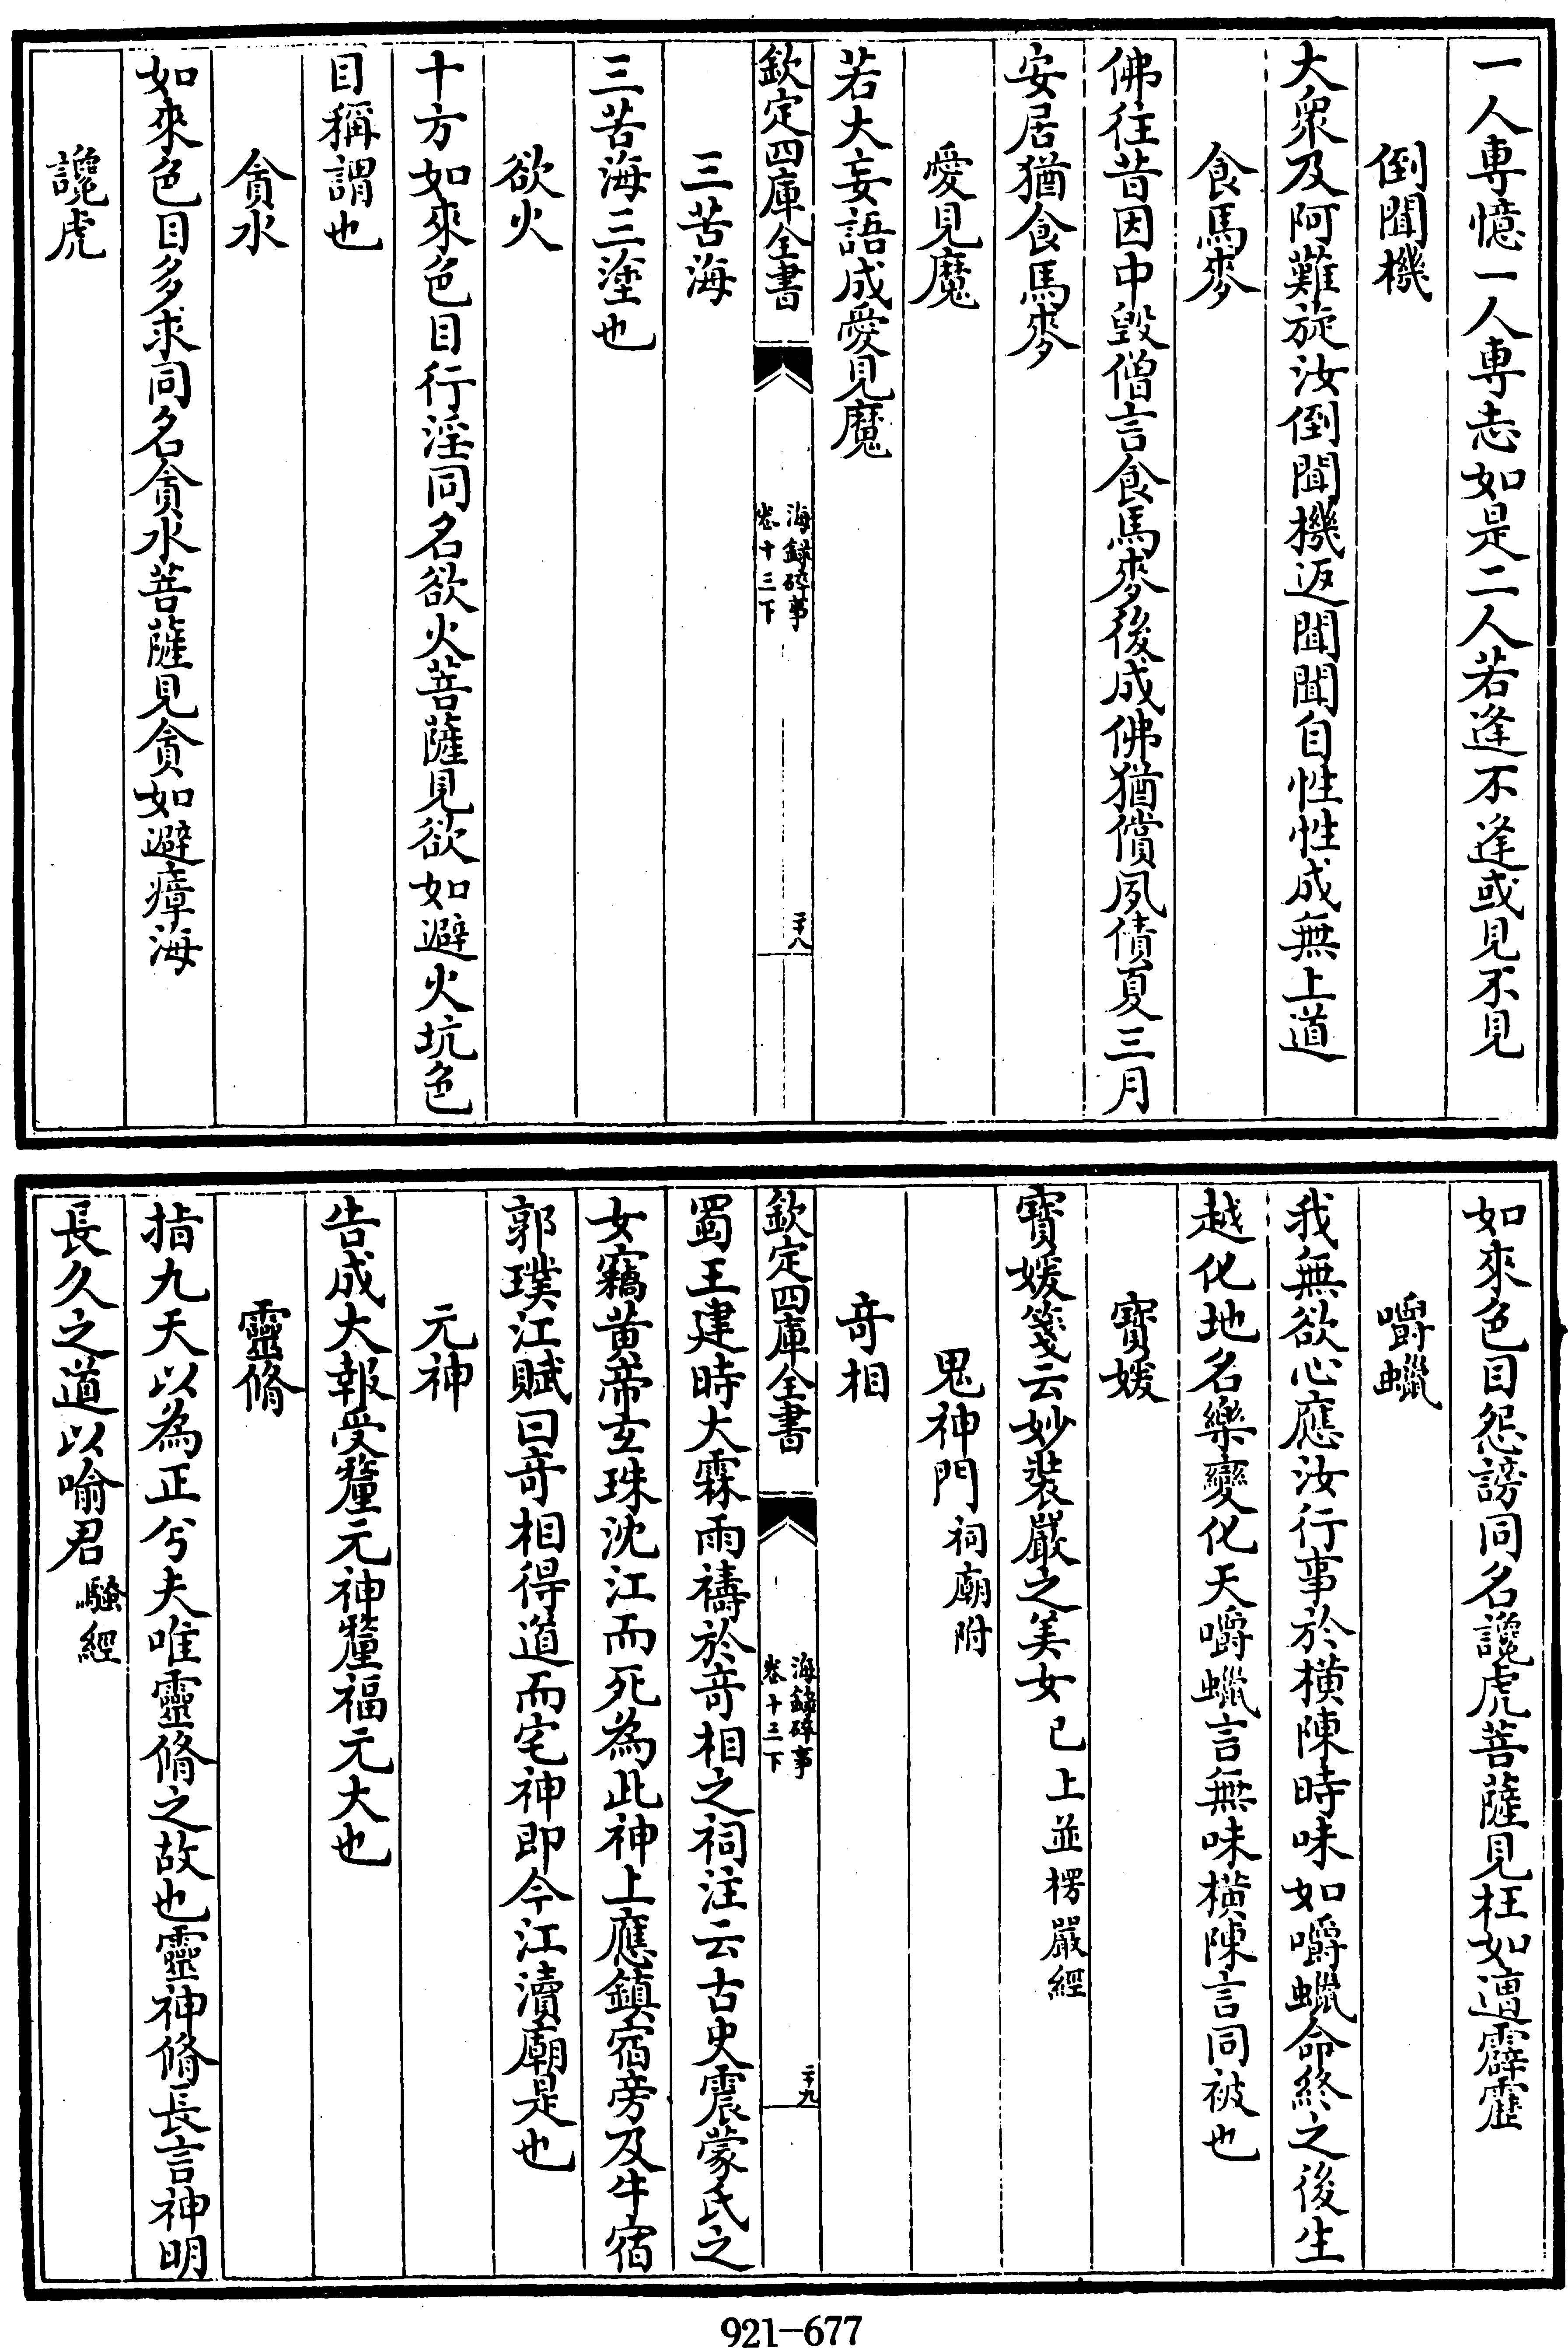 一人專憶一人專忘如是二人若逢不逢或見不見
倒聞機
大衆及阿難旋汝倒聞機返聞聞自性性成無上道
食馬麥
佛往昔因中毀僧言食馬麥後成佛猶償夙債夏三月
安居猶食馬麥
愛見魔
若大妄語成愛見魔
欽定四庫全書
海録碎事
卷十三下
二十八
三苦海
三苦海三塗也
欲火
十方如來色目行淫同名欲火菩薩見欲如避火坑色
目稱謂也
貪水
如來色目多求同名貪水菩薩見貪如避瘴海
讒虎
如來色目怨謗同名讒虎菩薩見枉如遭霹靂
嚼蠟
我無欲心應汝行事於橫陳時味如嚼蠟命終之後生
越化地名樂變化天嚼蠟言無味橫陳言同被也
寳媛
寳媛箋云妙裝嚴之美女已上並楞嚴經
鬼神門祠廟附
奇相
欽定四庫全書
海録碎事
卷十三下
二十九
蜀王建時大霖雨禱於奇相之祠注云古史震蒙氏之
女竊黄帝玄珠沈江而死為此神上應鎮宿旁及牛宿
郭璞江賦曰奇相得道而宅神即今江瀆廟是也
元神
告成大報受釐元神釐福元大也
靈脩
指九天以為正兮夫唯靈脩之故也靈神脩長言神明
長久之道以喻君騷經
921-677